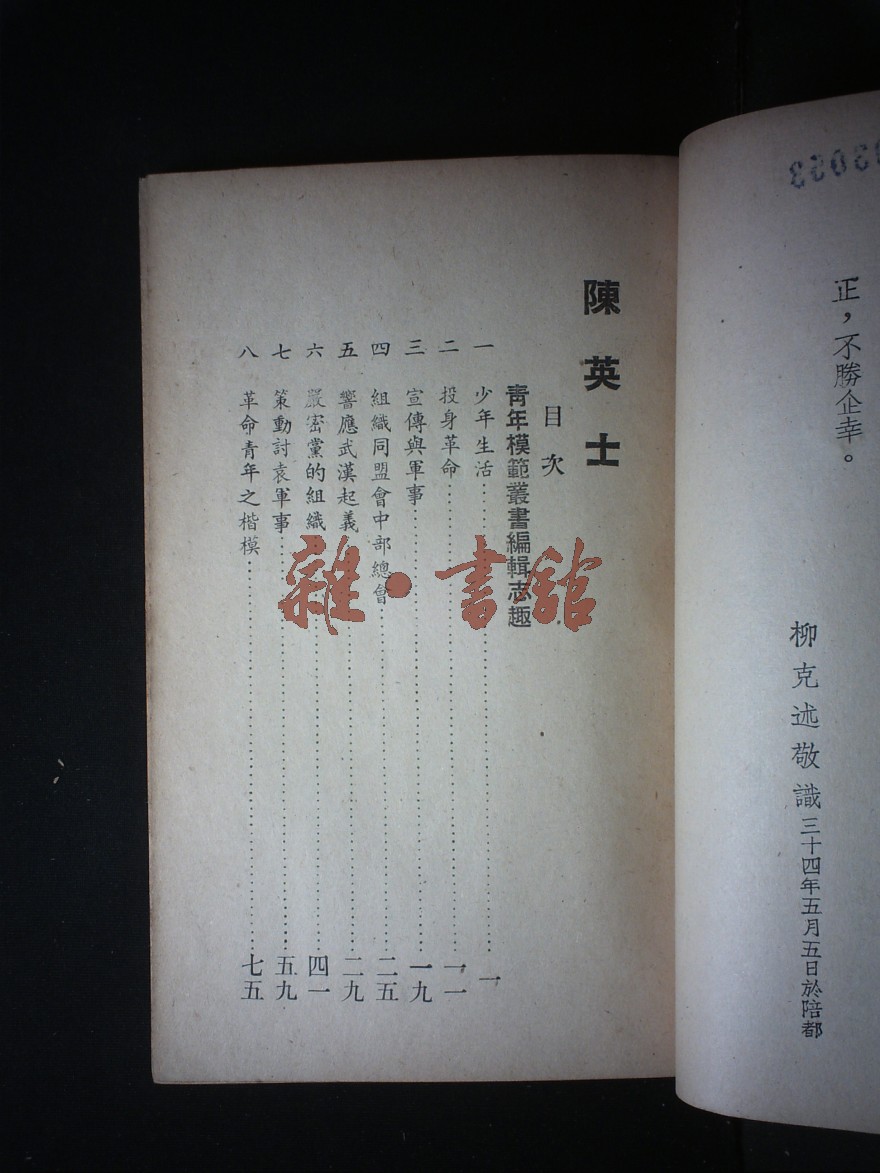 03033
正，不勝企幸。
柳克述敬識三十四年五月五日於陪都
陳英士
目次
青年模範叢書編輯志趣
一 少年生活……一
二 投身革命……一一
三 宣傳與軍事……一九
四 組織同盟會中部總會……二五
五 響應武漢起義……二九
六 嚴密黨的組織……四一
七 策動討袁軍事……五九
八 革命青年之楷模……七五
雜·書館